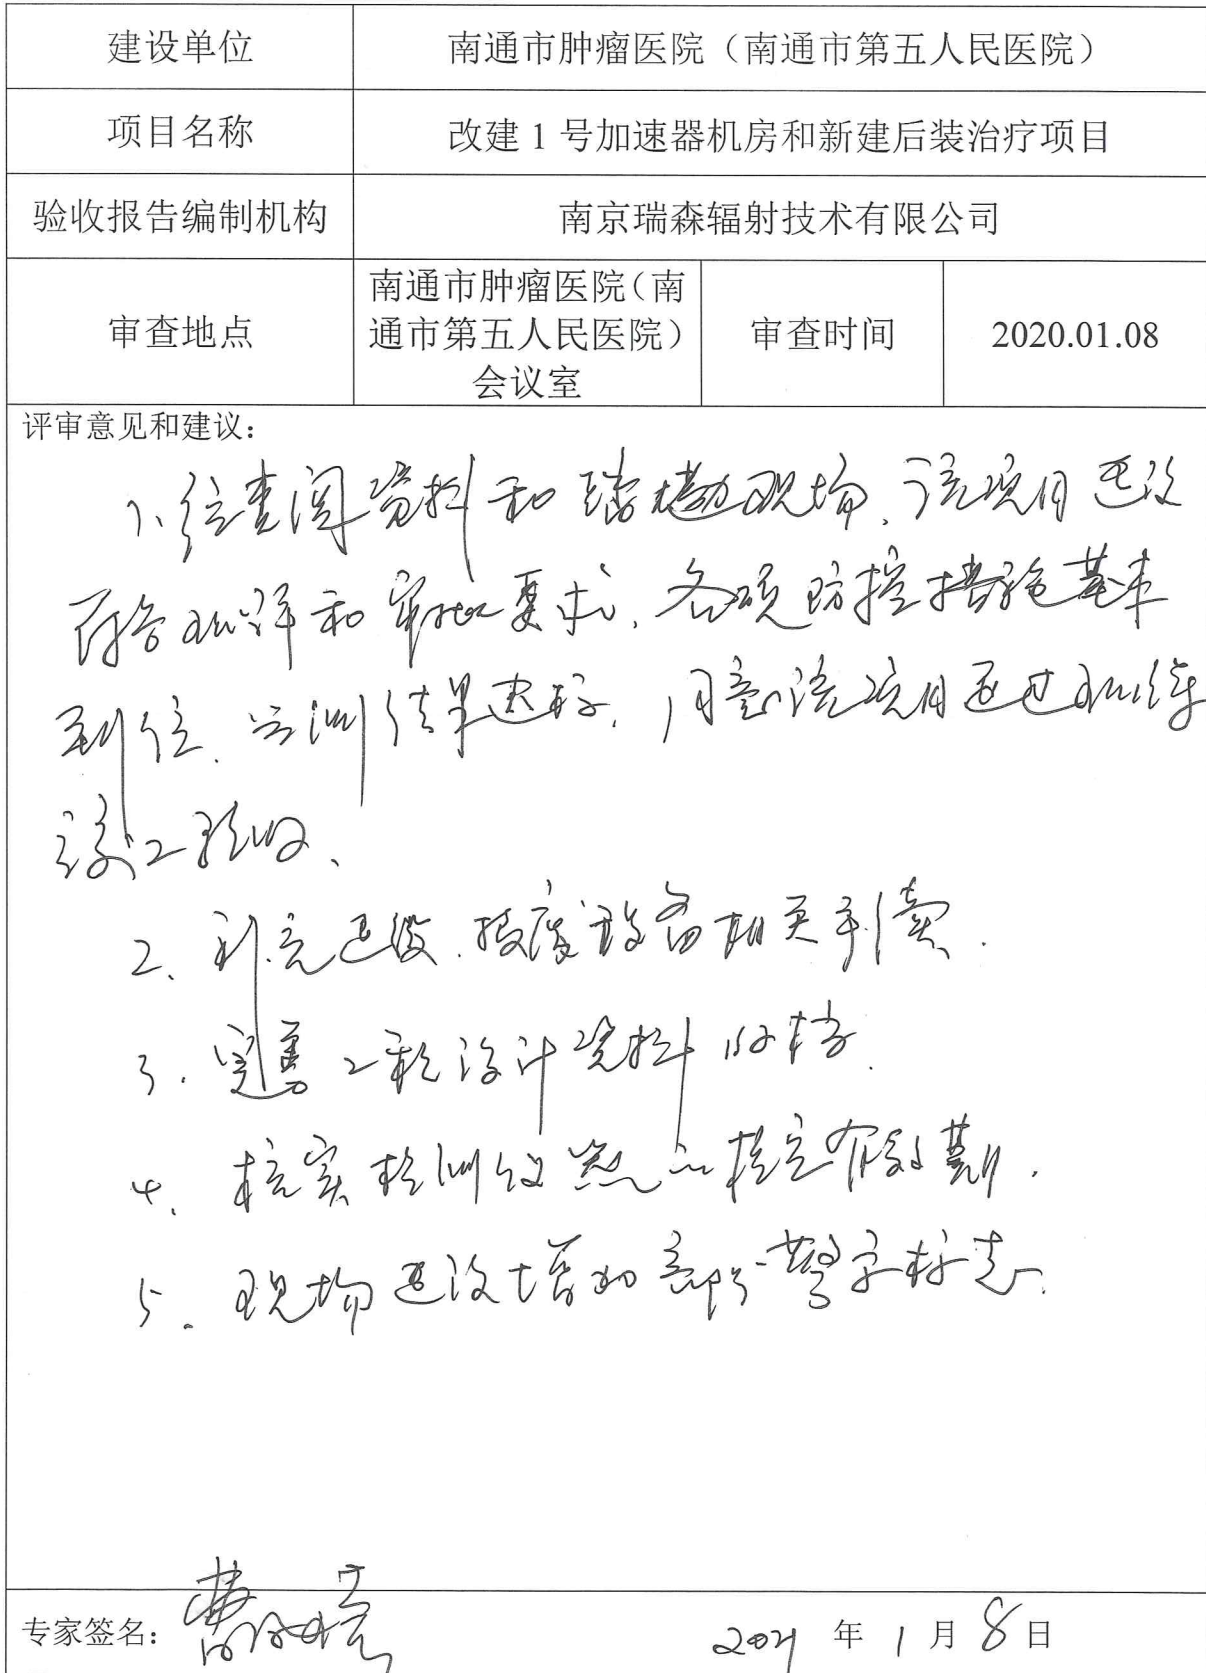 建设单位 南通市肿瘤医院（南通市第五人民医院）
项目名称 改建 1 号加速器机房和新建后装治疗项目
验收报告编制机构 南京瑞森辐射技术有限公司
审查地点 南通市肿瘤医院（南通市第五人民医院）会议室 审查时间 2020.01.08
评审意见和建议：
1、经查阅资料和踏勘现场，该项目建设
符合环评和审批要求，各项防控措施基本
到位，监测结果达标，同意该项目通过环保
竣工验收、
2、补充退役、报废设备相关手续.
3. 完善工程设计资料归档.
4、核实检测仪器的检定有效期.
5. 现场建议增加部分警示标志.
专家签名： 2021 年 1 月 8 日